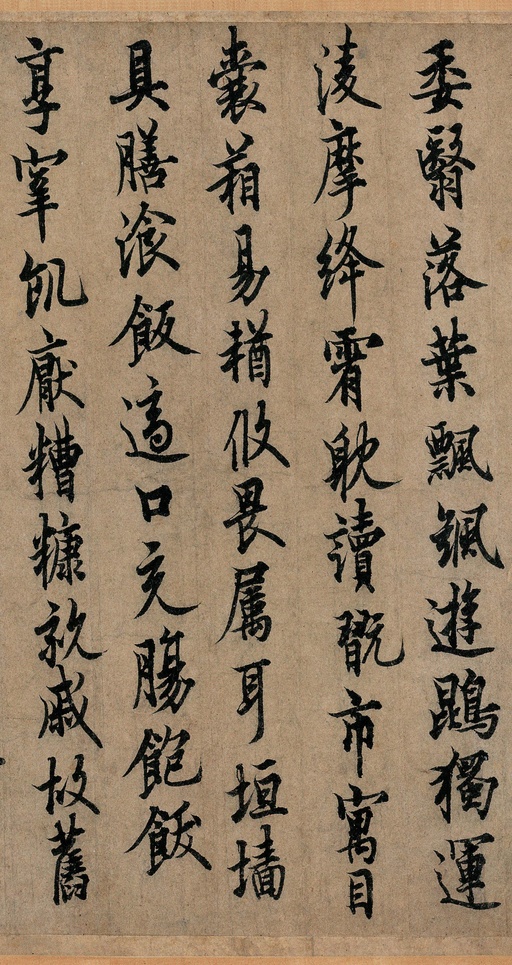 委翳落葉飄颻遊鵾獨運
淩摩絳霄耽讀翫市寓目
囊葙易輶攸畏属耳垣墙
具膳湌飯適口充腸飽飫
享宰飢猒糟糠親戚故舊